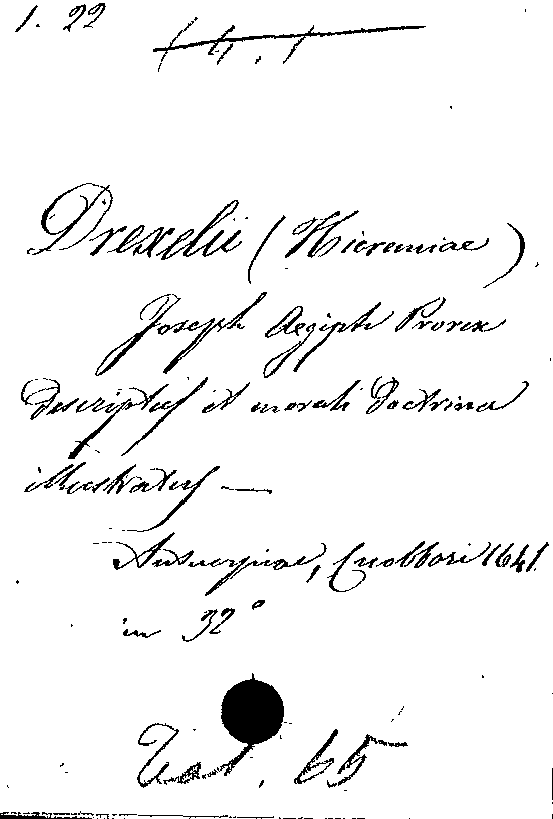 1. 22
14. 1
Drexelii (Hieremiae).
Joseph Aegipti Prorex
descriptus et morali doctrina
illustratus —
Antuerpiae, Cnobbari 1641.
in 32°
65